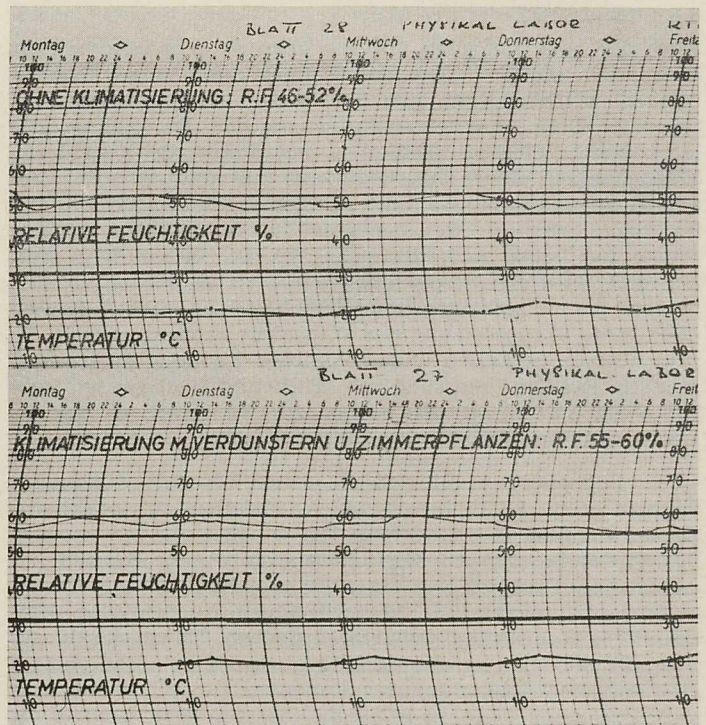 BLATT 28 PHYSIKAL LABOR
Montag Dienstag Mittwoch Donnerstag
8 10 12 14 16 18 20 22 24 2 4 6 8 10 12 14 16 18 20 22 24 2 4 6 8 10 12 14 16 18 20 22 24 2 4 6 8 10 12 14 16 18 20 22 24 2 4 6 8 10 12
100 100 100 100 100
90 90 90 90 90
OHNE KLIMATISIERUNG: R.F. 46-52%
80 80 80 80 80
70 70 70 70 70
60 60 60 60
50 50 50 50 50
RELATIVE FEUCHTIGKEIT %
40 40 40 40 40
30 30 30 30 30
20 20 20 20 20
TEMPERATUR °C
10 10 10 10 10
BLATT 27 PHYSIKAL. LABOR
Montag Dienstag Mittwoch Donnerstag Freit
8 10 12 14 16 18 20 22 24 2 4 6 8 10 12 14 16 18 20 22 24 2 4 6 8 10 12 14 16 18 20 22 24 2 4 6 8 10 12 14 16 18 20 22 24 2 4 6 8 10 12
100 100 100 100 100
90 90 90 90 90
KLIMATISIERUNG M. VERDUNSTERN U. ZIMMERPFLANZEN: R.F. 55-60%
80 80 80 80 80
70 70 70 70 70
60 60 60 60 60
50 50 50 50 50
RELATIVE FEUCHTIGKEIT %
40 40 40 40 40
30 30 30 30 30
20 20 20 20 20
TEMPERATUR °C
10 10 10 10 10